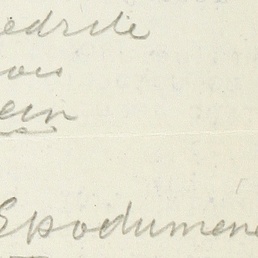 edrite
ois
ein
Spodumene